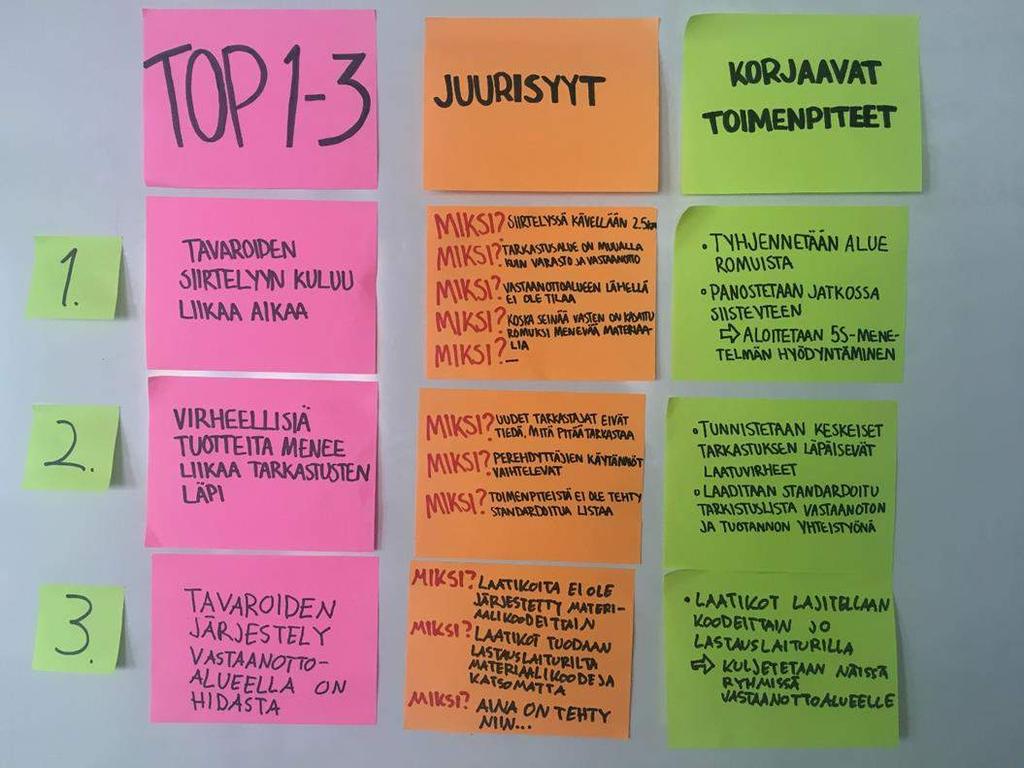 TOP 1-3
JUURISYYT
KORJAAVAT
TOIMENPITEET
1.
TAVAROIDEN
SIIRTELYYN KULUU
LIIKAA AIKAA
MIKSI? SIIRTELYSSÄ KÄVELLÄÄN 2.5km
MIKSI? TARKASTUSALUE ON MUUALLA
KUIN VARASTO JA VASTAANOTTO
MIKSI? VASTAANOTTOALUEEN LÄHELLÄ
EI OLE TILAA
MIKSI? KOSKA SEINÄÄ VASTEN ON KASATTU
ROMUKSI MENEVÄÄ MATERIAA-
LIA
MIKSI? —
• TYHJENNETÄÄN ALUE
ROMUISTA
• PANOSTETAAN JATKOSSA
SIISTEYTEEN
⇨ ALOITETAAN 5S-MENE-
TELMÄN HYÖDYNTÄMINEN
2.
VIRHEELLISIÄ
TUOTTEITA MENEE
LIIKAA TARKASTUSTEN
LÄPI
MIKSI? UUDET TARKASTAJAT EIVÄT
TIEDÄ, MITÄ PITÄÄ TARKASTAA
MIKSI? PEREHDYTTÄJIEN KÄYTÄNNÖT
VAIHTELEVAT
MIKSI? TOIMENPITEISTÄ EI OLE TEHTY
STANDARDOITUA LISTAA
• TUNNISTETAAN KESKEISET
TARKASTUKSEN LÄPÄISEVÄT
LAATUVIRHEET
• LAADITAAN STANDARDOITU
TARKISTUSLISTA VASTAANOTON
JA TUOTANNON YHTEISTYÖNÄ
3.
TAVAROIDEN
JÄRJESTELY
VASTAANOTTO-
ALUEELLA ON
HIDASTA
MIKSI? LAATIKOITA EI OLE
JÄRJESTETTY MATERI-
AALIKOODEITTAIN
MIKSI? LAATIKOT TUODAAN
LASTAUSLAITURILTA
MATERIAALIKOODEJA
KATSOMATTA
MIKSI? AINA ON TEHTY
NIIN...
• LAATIKOT LAJITELLAAN
KOODEITTAIN JO
LASTAUSLAITURILLA
⇨ KULJETETAAN NÄISSÄ
RYHMISSÄ
VASTAANOTTOALUEELLE